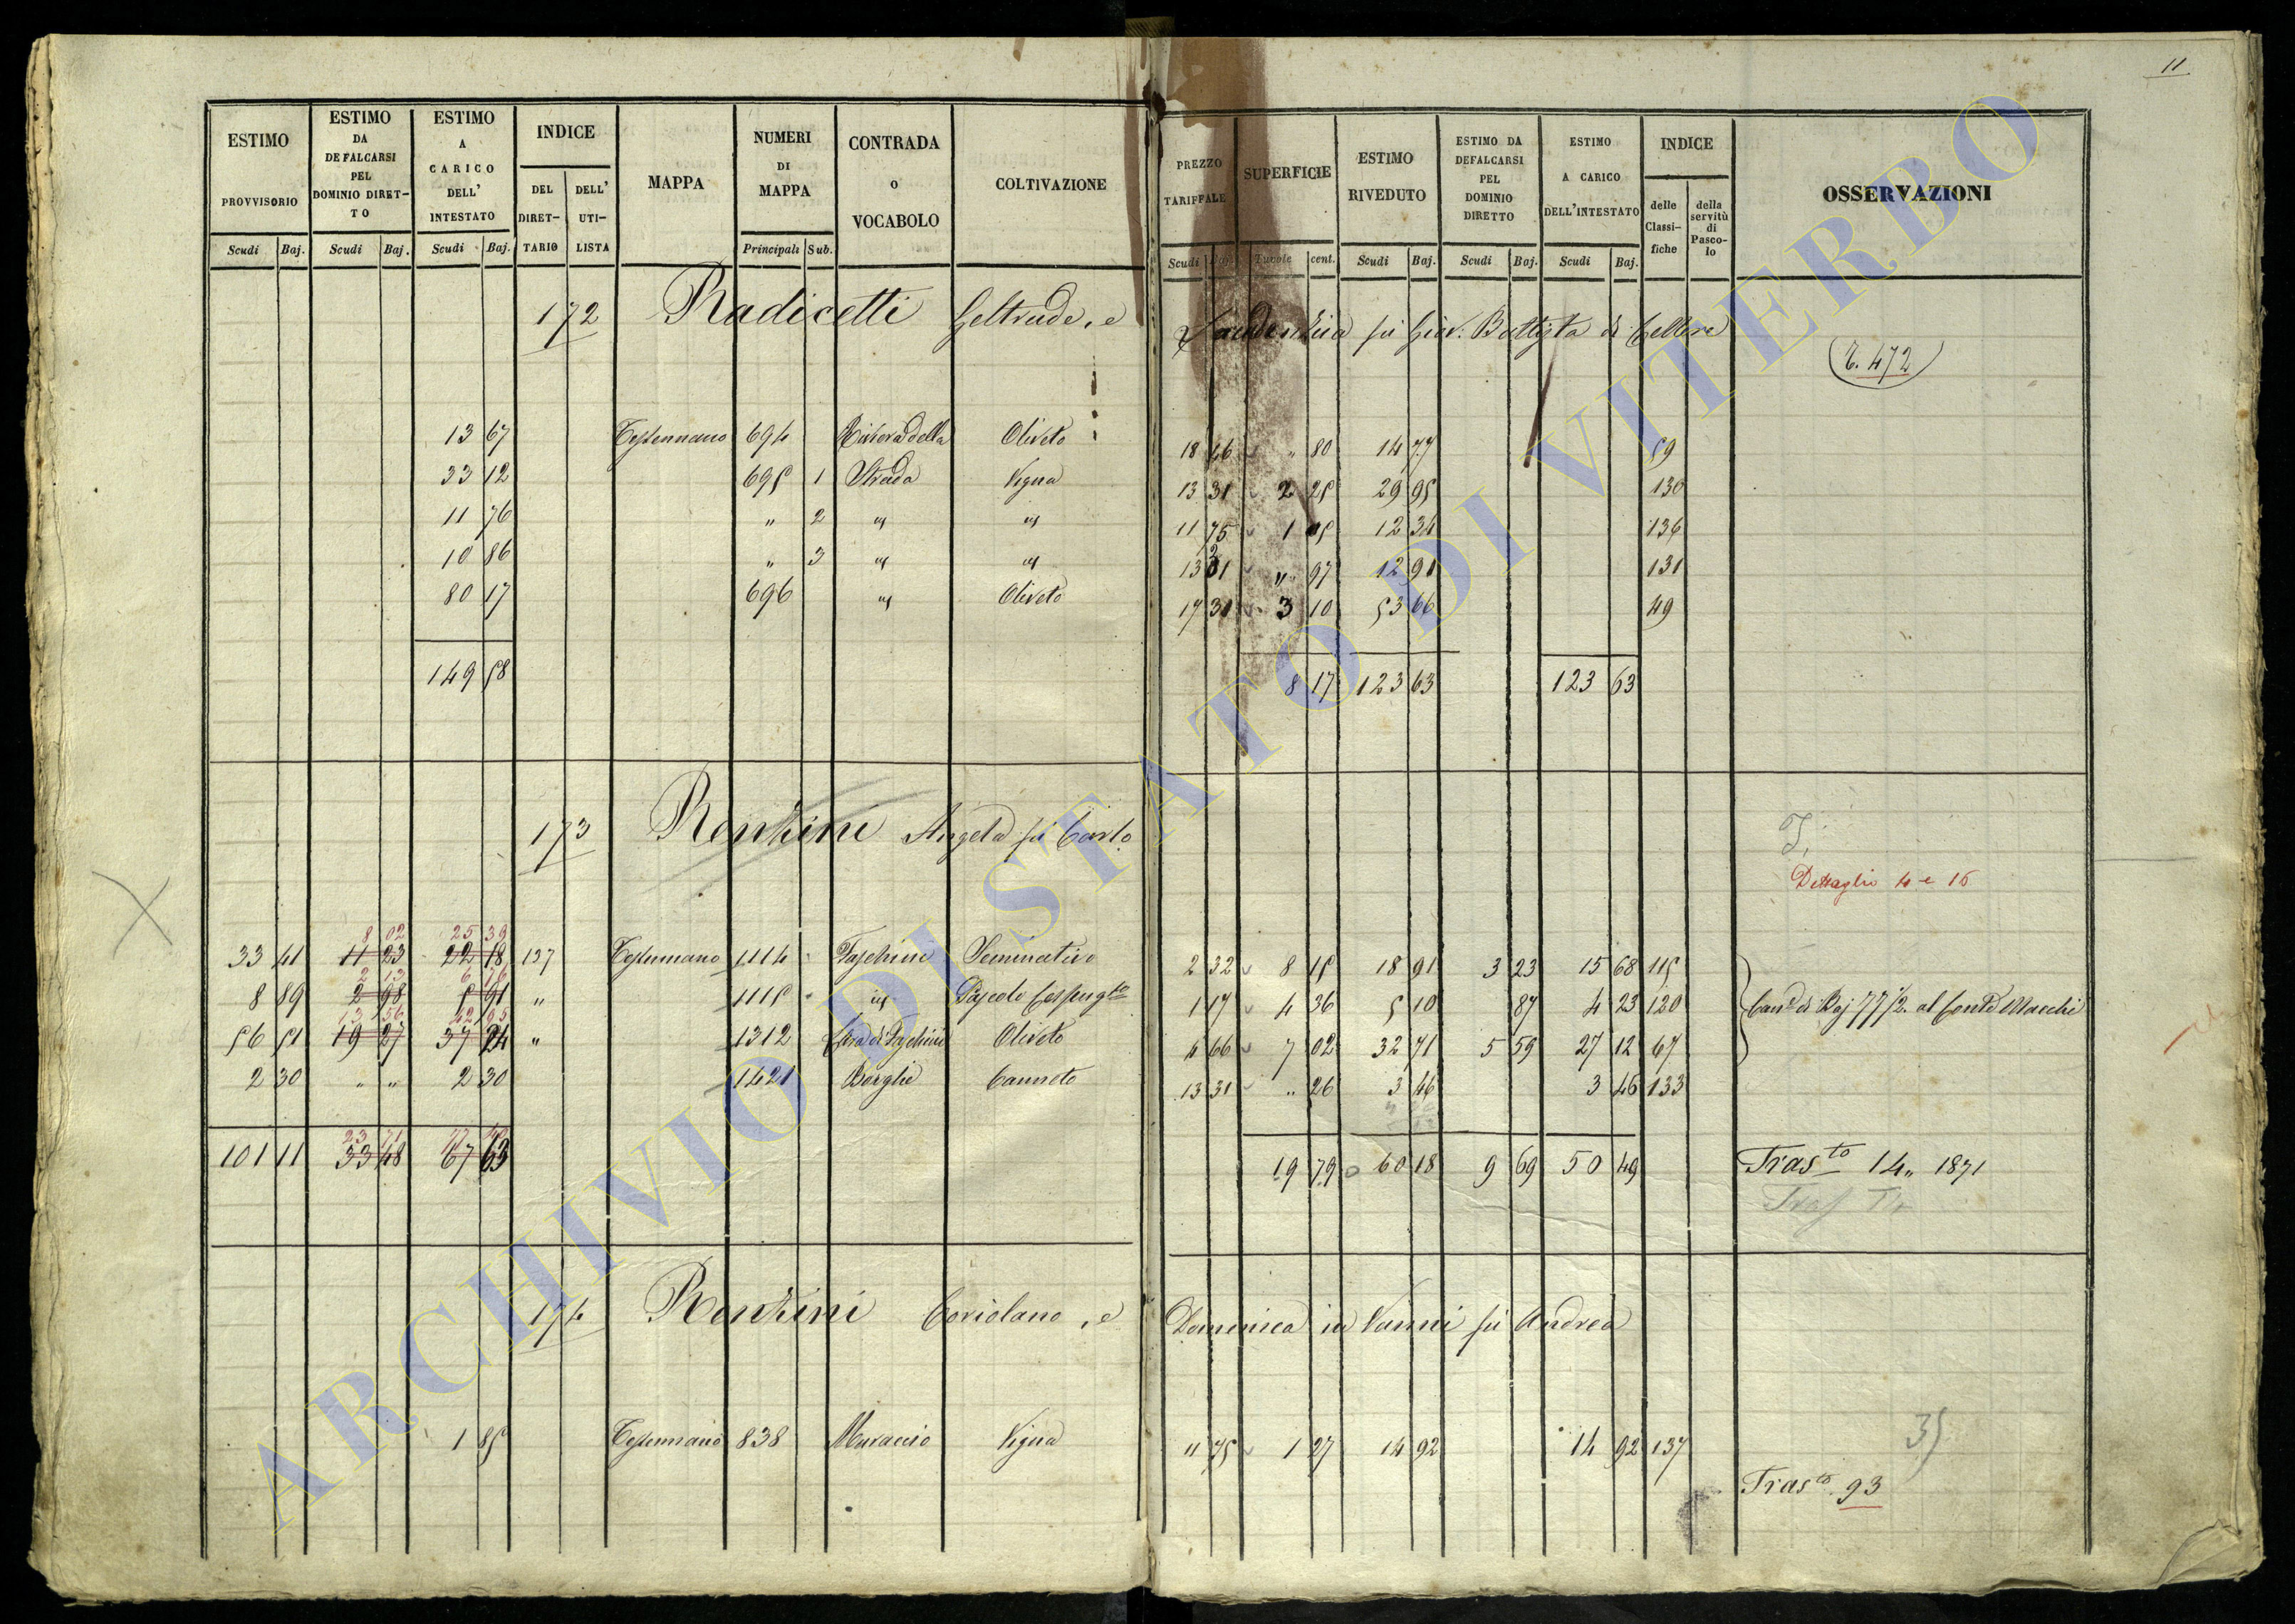 11
ESTIMO PROVVISORIO Scudi Baj.
ESTIMO DA DEFALCARSI PEL DOMINIO DIRET-TO Scudi Baj.
ESTIMO A CARICO DELL' INTESTATO Scudi Baj.
INDICE DEL DIRET-TARIO DELL' UTI-LISTA
MAPPA
NUMERI DI MAPPA Principali Sub.
CONTRADA O VOCABOLO
COLTIVAZIONE
PREZZO TARIFFALE Scudi Baj.
SUPERFICIE Tavole cent.
ESTIMO RIVEDUTO Scudi Baj.
ESTIMO DA DEFALCARSI PEL DOMINIO DIRETTO Scudi Baj.
ESTIMO A CARICO DELL'INTESTATO Scudi Baj.
INDICE delle Classi-fiche della servitù di Pasco-lo
OSSERVAZIONI
172 Radicetti Geltrude, e Gaudenzia fu Giov: Battista di Cellere
T. 472
13 67 Tessennano 694 Oliveto 18 46 " 80 14 77 59
33 12 695 1 Strada Vigna 13 31 2 25 29 95 130
11 76 " 2 id id 11 75 1 05 12 34 136
10 86 " 3 id id 13 31 " 97 12 91 131
80 17 696 id Oliveto 17 31 3 10 53 66 49
149 58 8 17 123 63 123 63
173 Renzini Angela fu Carlo
Dettaglio 4 e 16
8 02 25 39
33 41 11 23 22 18 137 Tessennano 1114 Paschini Seminativo 2 32 8 15 18 91 3 23 15 68 115
2 13 6 76
8 89 2 98 5 91 " 1115 id Pascolo Cespug.to 1 17 4 36 5 10 87 4 23 120 Can.e di Baj 77 1/2. al Conte Macchi
13 56 42 95
56 51 19 27 37 24 " 1312 Oliveto 4 66 7 02 32 71 5 59 27 12 67
2 30 " " 2 30 1421 Borghi Canneto 13 31 " 26 3 46 3 46 133
23 71
101 11 33 48 67 63 19 79 60 18 9 69 50 49 Tras.to 14,, 1871
174 Renzini Coriolano, e Domenica in Vanni fu Andrea
1 85 Tessennano 838 Muraccio Vigna 11 75 1 27 14 92 14 92 137
35
Tras.to 93
ARCHIVIO DI STATO DI VITERBO